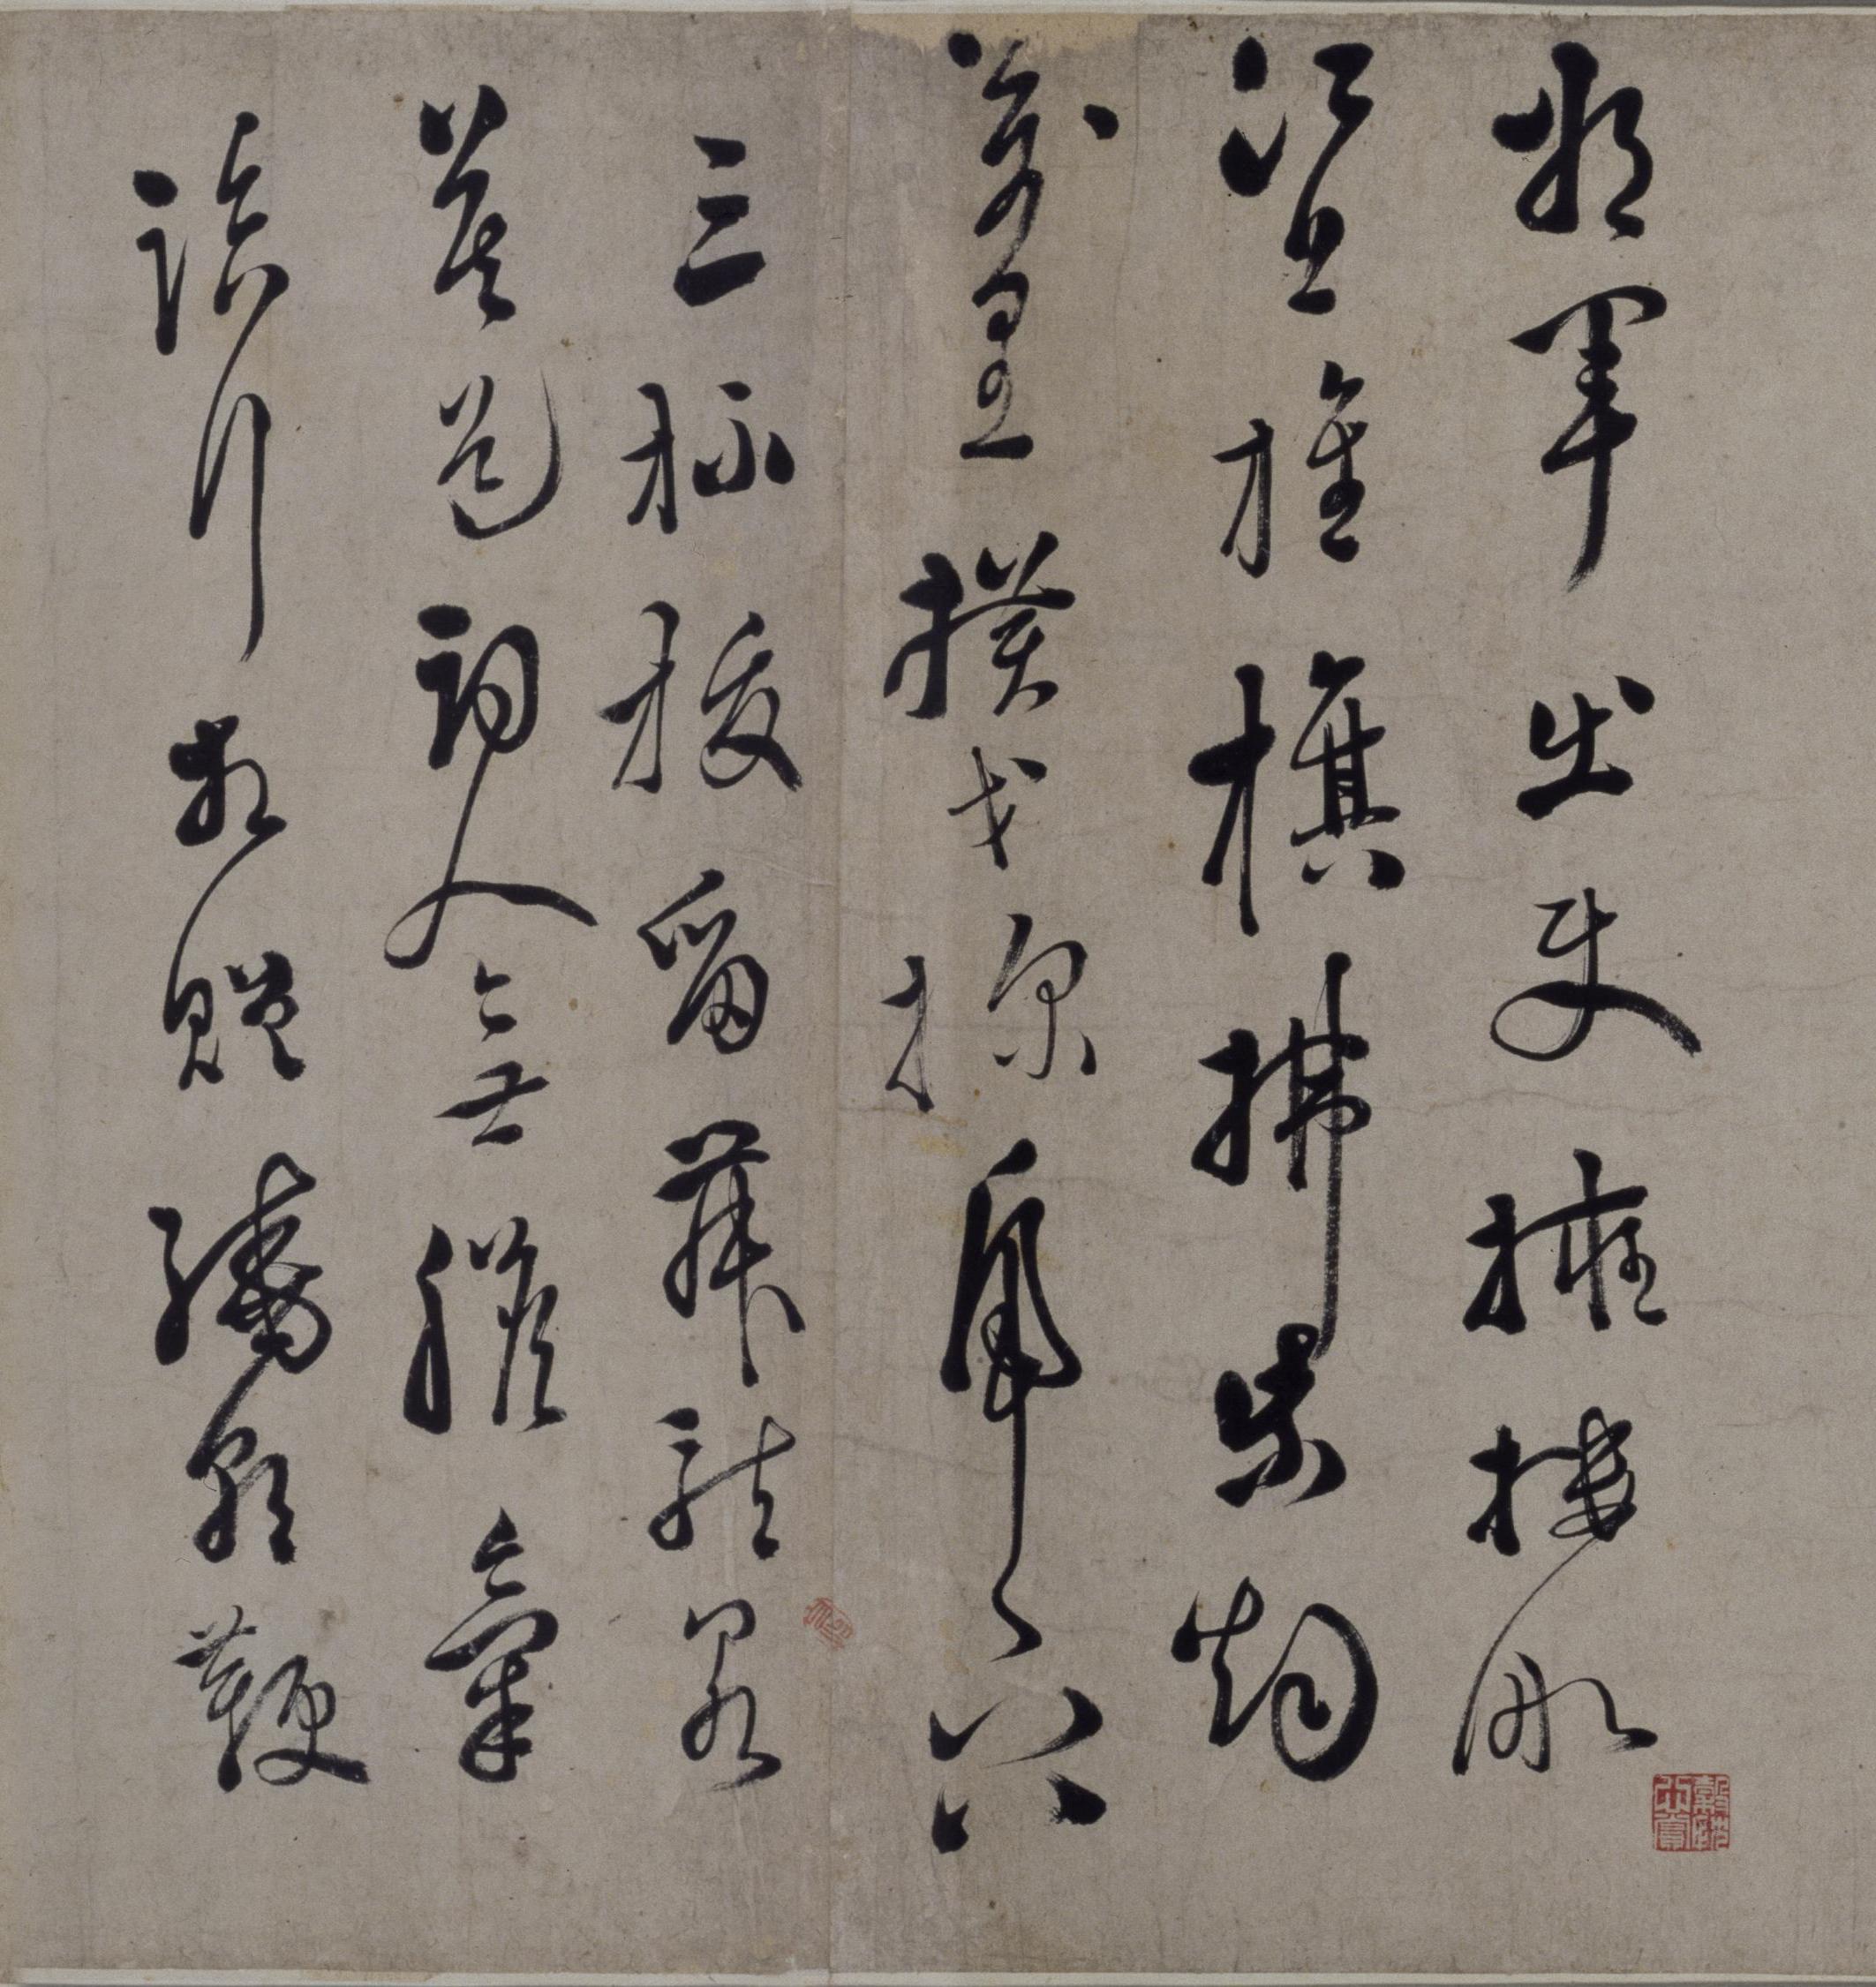 將軍出使擁樓船
江上旌旗拂紫烟
萬里橫戈探虎穴
三杯拔劍舞龍泉
莫道詞人無膽氣
臨行將贈繞朝鞭